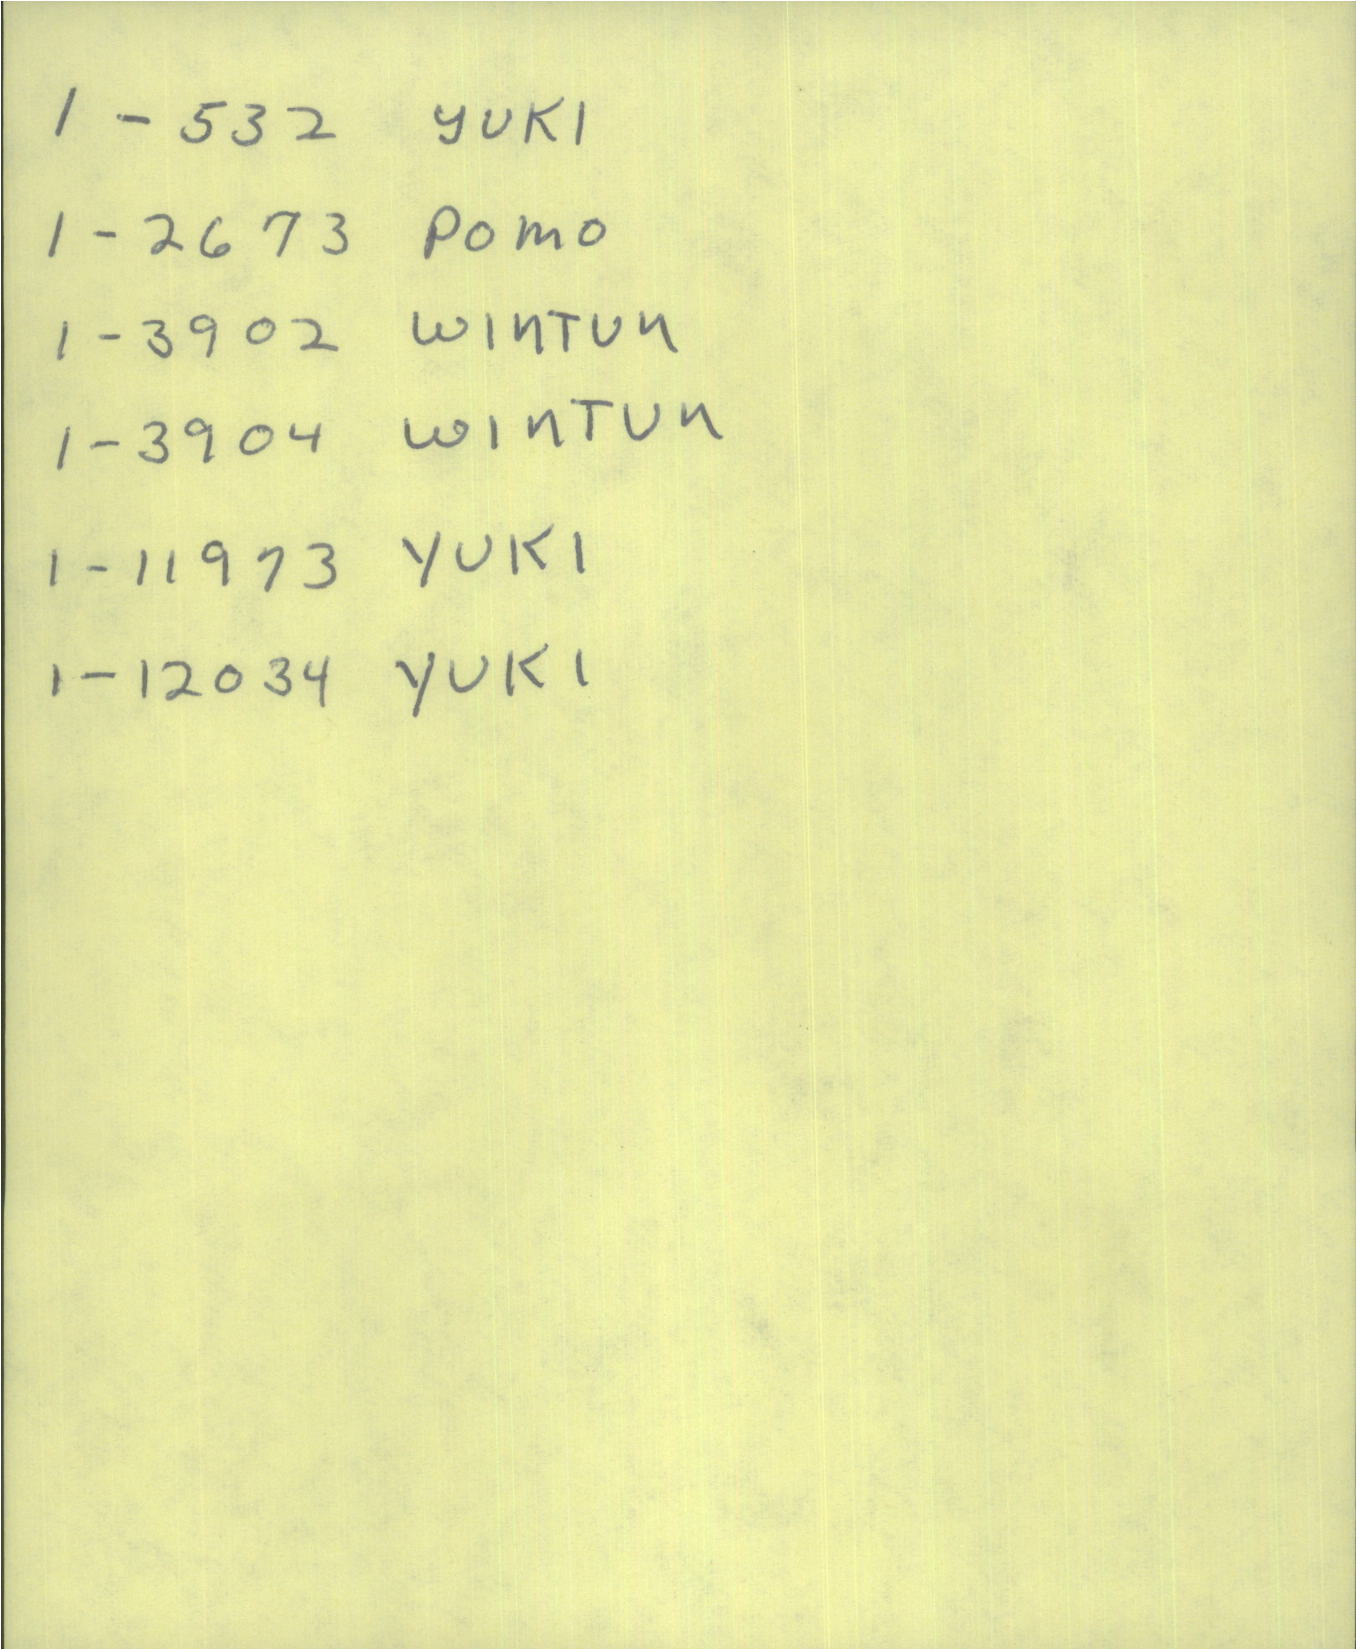 1-532 YUKI
1-2673 POMO
1-3902 WINTUN
1-3904 WINTUN
1-11973 YUKI
1-12034 YUKI